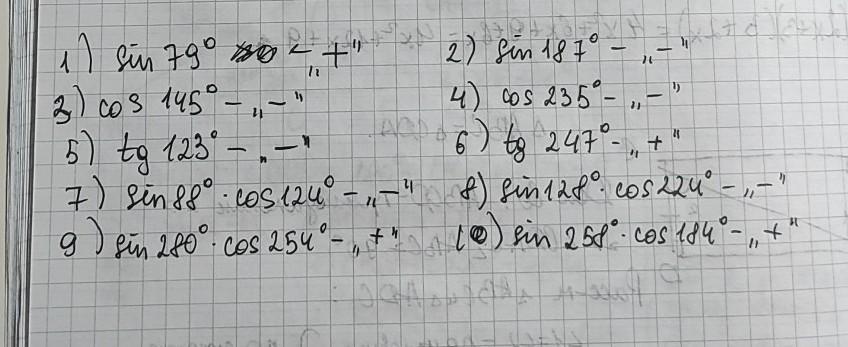 1) sin 79° – „+" 2) sin 187° – „–"
3) cos 145° – „–" 4) cos 235° – „–"
5) tg 123° – „–" 6) tg 247° – „+"
7) sin 88° · cos 124° – „–" 8) sin 128° · cos 224° – „–"
9) sin 280° · cos 254° – „+" 10) sin 258° · cos 184° – „+"